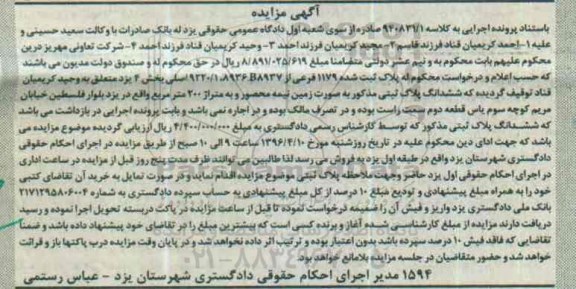 آگهی مزایده
باستناد پرونده اجرایی به کلاسه ۹۴۰۸۳۱/۱ صادره از سوی شعبه اول دادگاه عمومی حقوقی یزد له بانک صادرات با وکالت سعید حسینی و
علیه ۱-احمد کریمیان قناد فرزند قاسم ۲- مجید کریمیان فرزند احمد ۳- وحید کریمیان قناد فرزند احمد ۴- شرکت تعاونی مهریز درین
محکوم علیهم بابت محکوم به و نیم عشر دولتی متضامنا مبلغ ۸/۸۹۱/۰۲۵/۶۱۹ ریال در حق محکوم له و صندوق دولت مدیون می باشند
که حسب اعلام و درخواست محکوم له پلاک ثبت شده ۱۱۷۹ فرعی از ۱۹۲۲۰/۱،۸۹۳۶ B۸۹۳۷ اصلی بخش ۴ یزد متعلق به وحید کریمیان
قناد توقیف گردیده که ششدانگ پلاک ثبتی مذکور به صورت زمین نیمه محصور و به متراژ ۲۰۰ متر مربع واقع در یزد بلوار فلسطین خیابان
مریم کوچه سوم یاس قطعه دوم سمت راست بوده و در تصرف مالک بوده و در اجاره نمی باشد و بابت پرونده اجرایی در بازداشت می باشد
که ششدانگ پلاک ثبتی مذکور که توسط کارشناس رسمی دادگستری به مبلغ ۴/۴۰۰/۰۰۰/۰۰۰ ریال ارزیابی گردیده موضوع مزایده می
باشد که جهت ادای دین محکوم علیه در تاریخ روزشنبه مورخ ۱۳۹۶/۴/۱۰ ساعت ۹ الی ۱۰ صبح از طریق مزایده در اجرای احکام حقوقی
دادگستری شهرستان یزد واقع در طبقه اول یزد به فروش می رسد لذا طالبین می توانند ظرف مدت پنج روز قبل از مزایده در ساعت اداری
در اجرای احکام حقوقی اول یزد حاضر وجهت ملاحظه پلاک ثبتی موضوع مزایده اقدام نمایند و در صورت تمایل به خرید آن تقاضای کتبی
خود را به همراه مبلغ پیشنهادی و تودیع مبلغ ۱۰ درصد از کل مبلغ پیشنهادی به حساب سپرده دادگستری به شماره ۲۱۷۱۲۹۵۸۰۶۰۰۴
بانک ملی دادگستری یزد واریز و فیش آن را ضمیمه درخواست نموده تا قبل از ساعت مزایده در پاکت دربسته تحویل اجرا نموده و رسید
دریافت دارند مزایده از مبلغ کارشناسی شده آغاز و برنده کسی است که بیشترین مبلغ را در تقاضای خود پیشنهاد داده باشد و ضمناً
تقاضایی که فاقد فیش ۱۰ درصد سپرده باشد بدون اعتبار بوده و ترتیب اثر داده نخواهد شد و در پایان وقت مزایده درب پاکتها باز و قرائت
خواهد شد و حضور متقاضیان در جلسه مزایده بلامانع خواهد بود.
۱۵۹۴ مدیر اجرای احکام حقوقی دادگستری شهرستان یزد - عباس رستمی